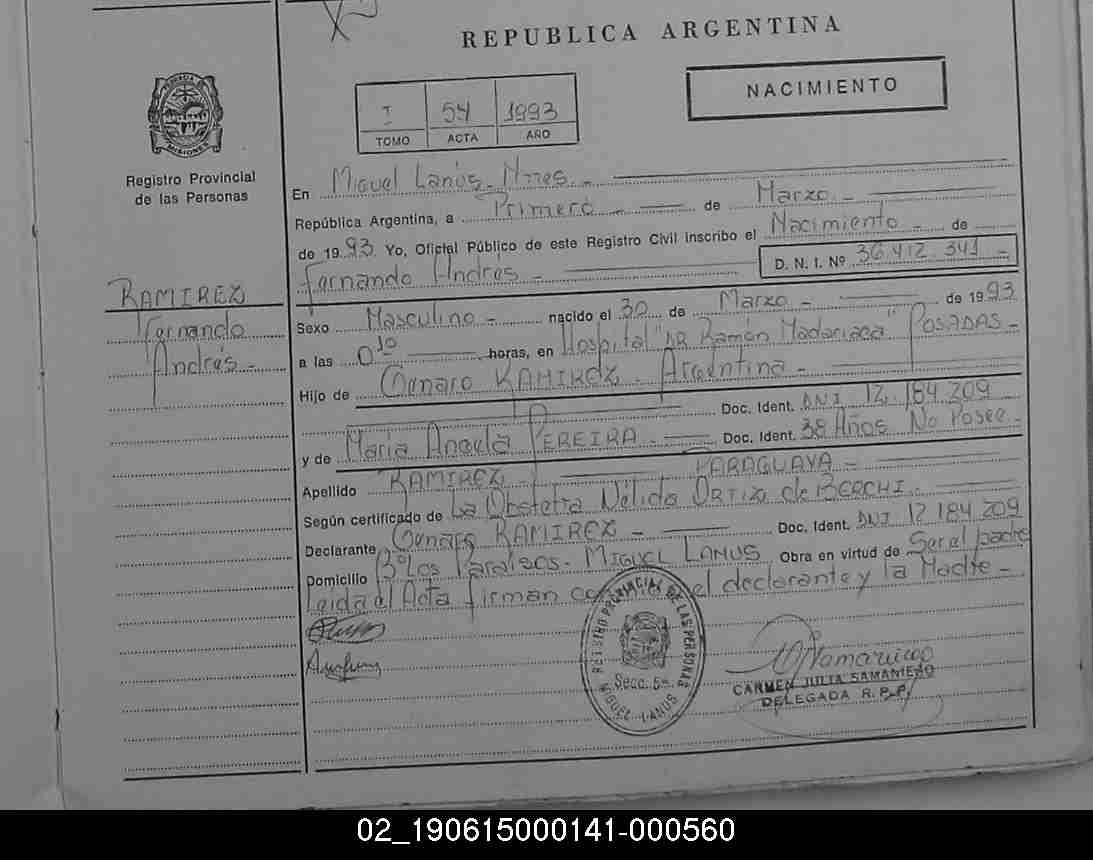 REPUBLICA ARGENTINA
NACIMIENTO
I 54 1993
TOMO ACTA AÑO
PROVINCIA DE MISIONES
Registro Provincial
de las Personas
RAMIREZ
Fernando
Andrés -
En Miguel Lanús - Mnes -
República Argentina, a Primero - de Marzo -
de 1993 Yo, Oficial Público de este Registro Civil inscribo el Nacimiento - de
Fernando Andrés - D. N. I. Nº 36.412.341 -
Sexo Masculino - nacido el 30 de Marzo - de 1993
a las 0¹⁰ horas, en Hospital "DR Ramón Madariaga" POSADAS -
Hijo de Genaro RAMIREZ - Argentina -
Doc. Ident. DNI 12.184.209
y de Maria Angela PEREIRA - Doc. Ident. 38 Años No Posee -
Apellido RAMIREZ - PARAGUAYA -
Según certificado de La Obstetra Nélida ORTIZ de BERCHI -
Declarante Genaro RAMIREZ - Doc. Ident. DNI 12 184 209
Domicilio Bº Los Paraisos - MIGUEL LANUS Obra en virtud de Ser el padre
Leida el Acta firman el declarante y la Madre -
REGISTRO PROVINCIAL DE LAS PERSONAS
Secc. 5ª
MIGUEL LANUS
CARMEN JULIA SAMANIEGO
DELEGADA R. P. P.
02_190615000141-000560